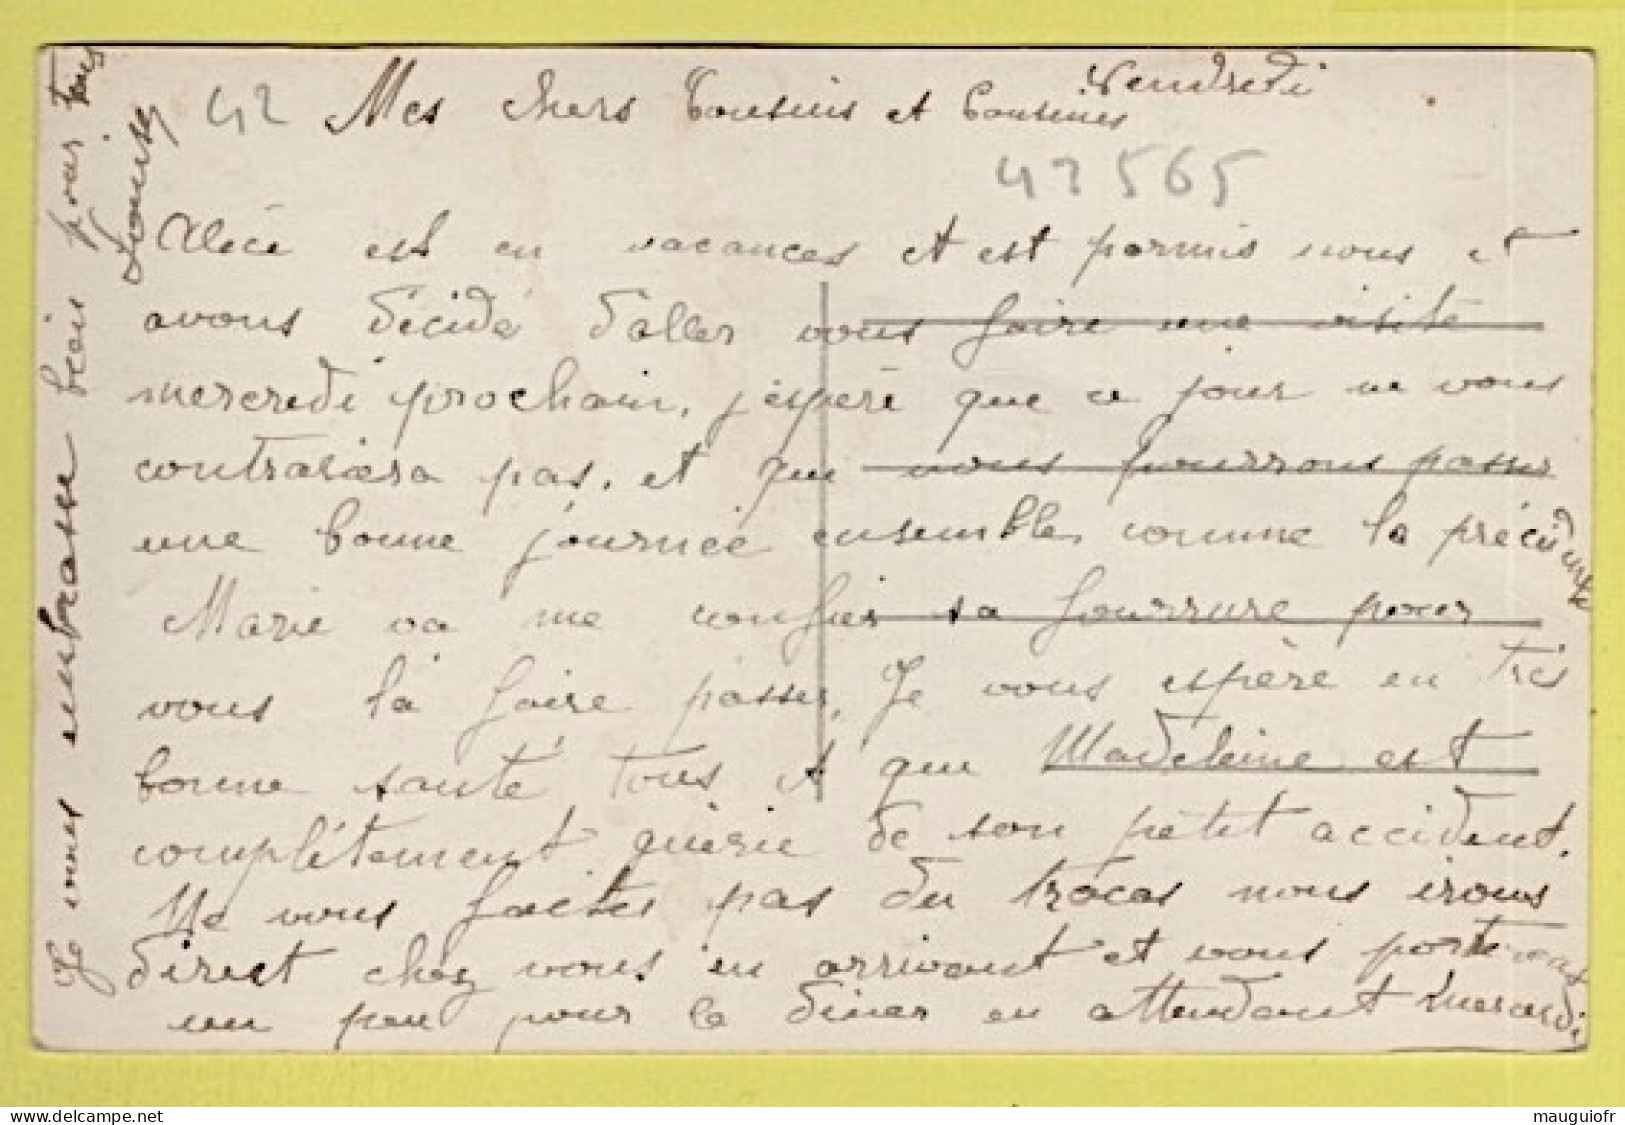 Vendredi
42 Mes chers Cousins et Cousines
42565
Alice est en vacances et est parmis nous et
avons décidé d'aller vous faire une visite
mercredi prochain, j'espère que ce jour ne vous
contrariera pas, et que nous pourrons passer
une bonne journée ensemble comme la précédente
Marie va me confier sa fourrure pour
vous la faire passer, Je vous espère en très
bonne santé tous et que Madeleine est
complétement guérie de son petit accident.
Ne vous faites pas du tracas nous irons
direct chez vous en arrivant et vous porterons
un peu pour le diner en attendant mercredi
Je vous embrasse bein pour tous
Louise
delcampe.net
mauguiofr